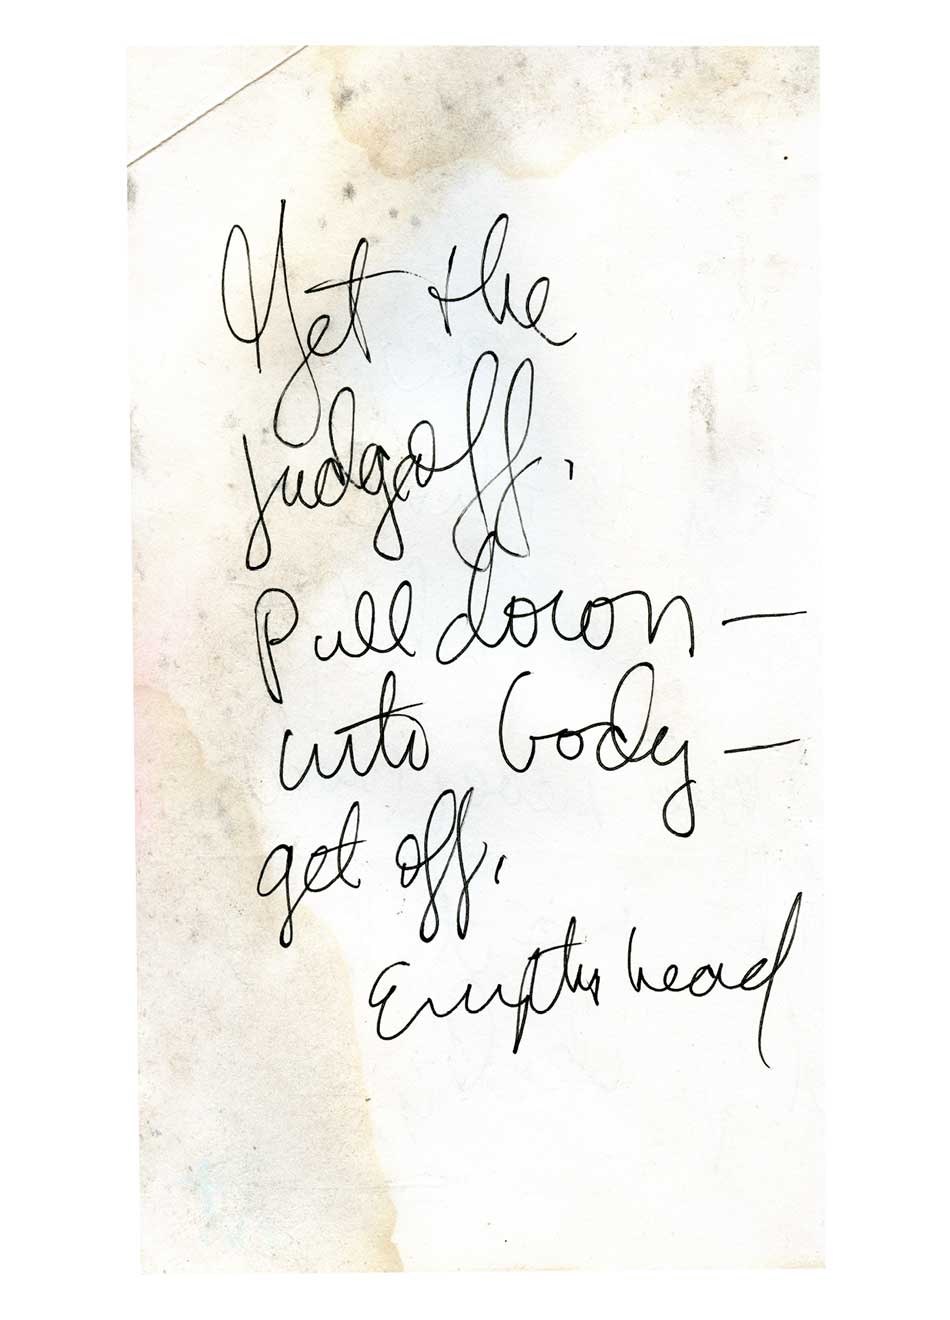 Get the
judge off.
Pull down —
into body —
get off.
Empty head